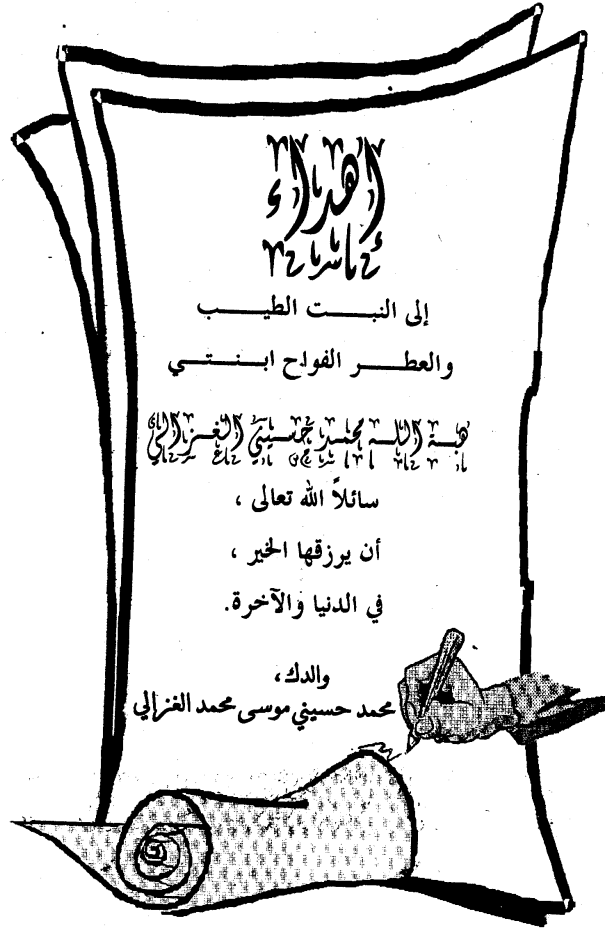 إهداء
إلى النبت الطيب
والعطر الفواح ابنتي
هبة الله محمد حسيني الغزالي
سائلاً الله تعالى ،
أن يرزقها الخير ،
في الدنيا والآخرة.
والدك،
محمد حسيني موسى محمد الغزالي